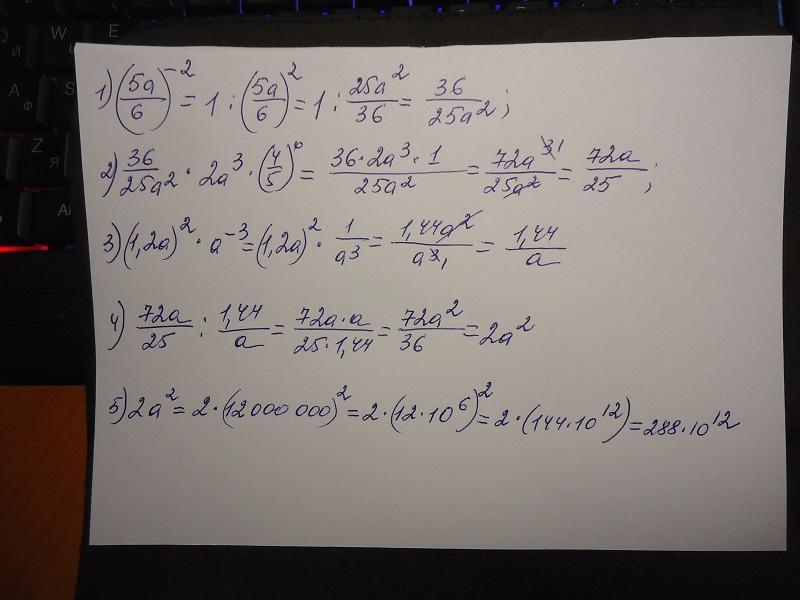 Q Й
W
E
A Ф
S
Z Я
Al
1) (5a/6)^-2 = 1 : (5a/6)^2 = 1 : 25a^2/36 = 36/25a^2 ;
2) 36/25a^2 · 2a^3 · (4/5)^0 = 36·2a^3·1/25a^2 = 72a^3 1/25a^2 = 72a/25 ;
3) (1,2a)^2 · a^-3 = (1,2a)^2 · 1/a^3 = 1,44a^2/a^3 1 = 1,44/a
4) 72a/25 : 1,44/a = 72a·a/25·1,44 = 72a^2/36 = 2a^2
5) 2a^2 = 2·(12 000 000)^2 = 2·(12·10^6)^2 = 2·(144·10^12) = 288·10^12